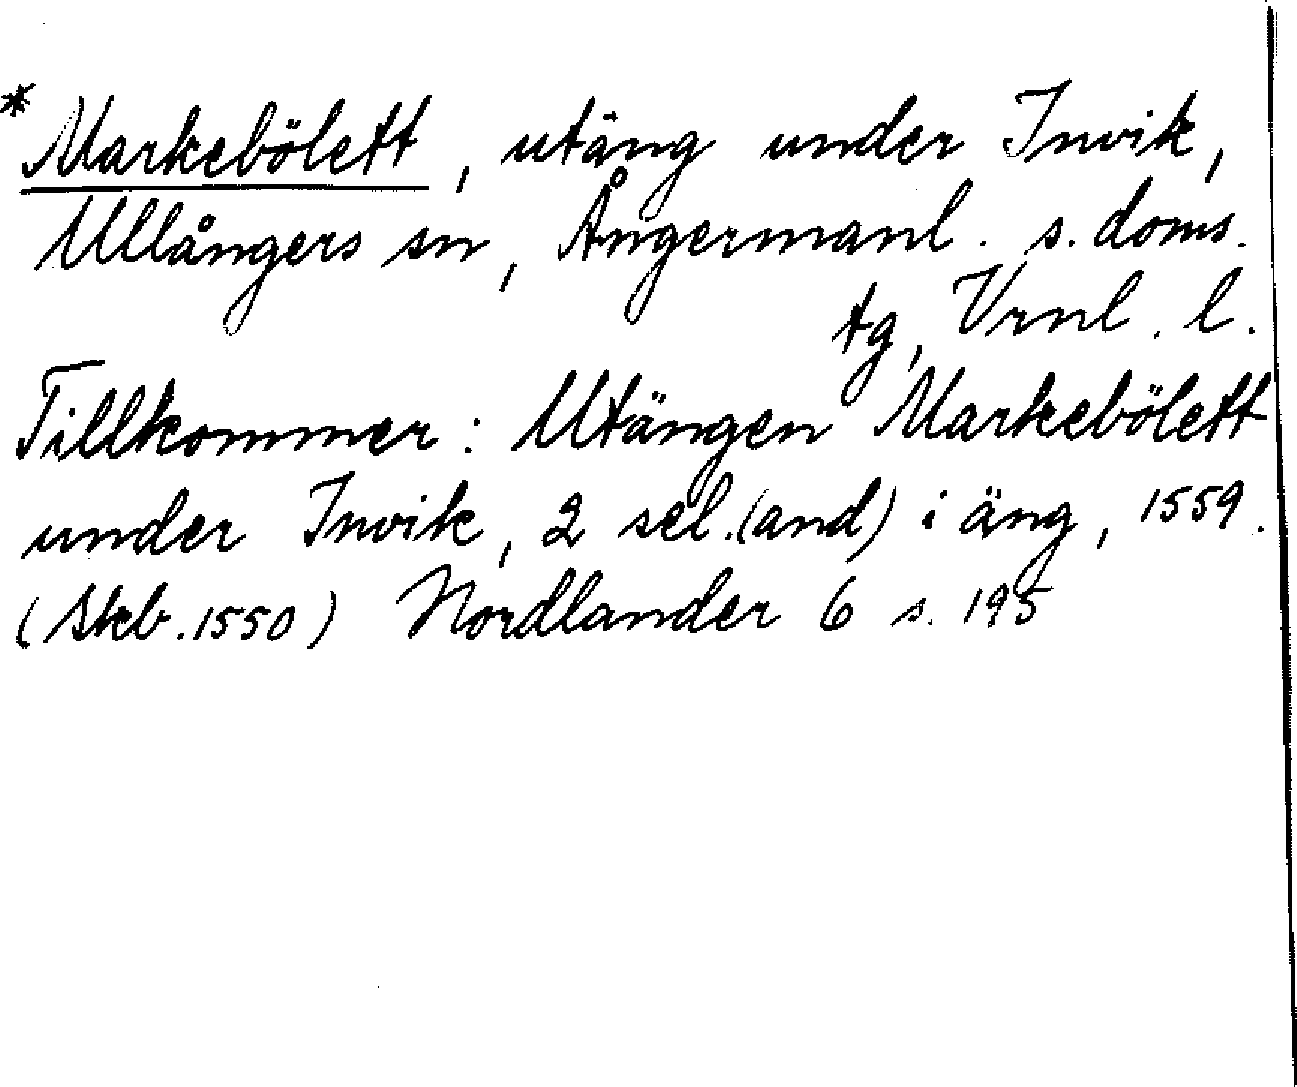 * Markebölett, utäng under Invik,
Ullångers sn, Ångermanl. s. doms.
tg, Vrnl. l.
Tillkommer: Utängen Markebölett
under Invik, 2 sel.(and) i äng, 1559.
(Skb. 1550) Nordlander 6 s. 195